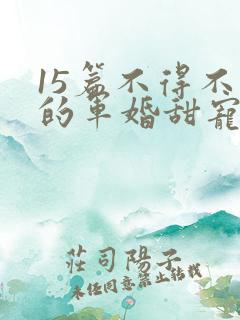 15篇不得不
的军婚甜宠
莊司陽子
未经同意禁止转载